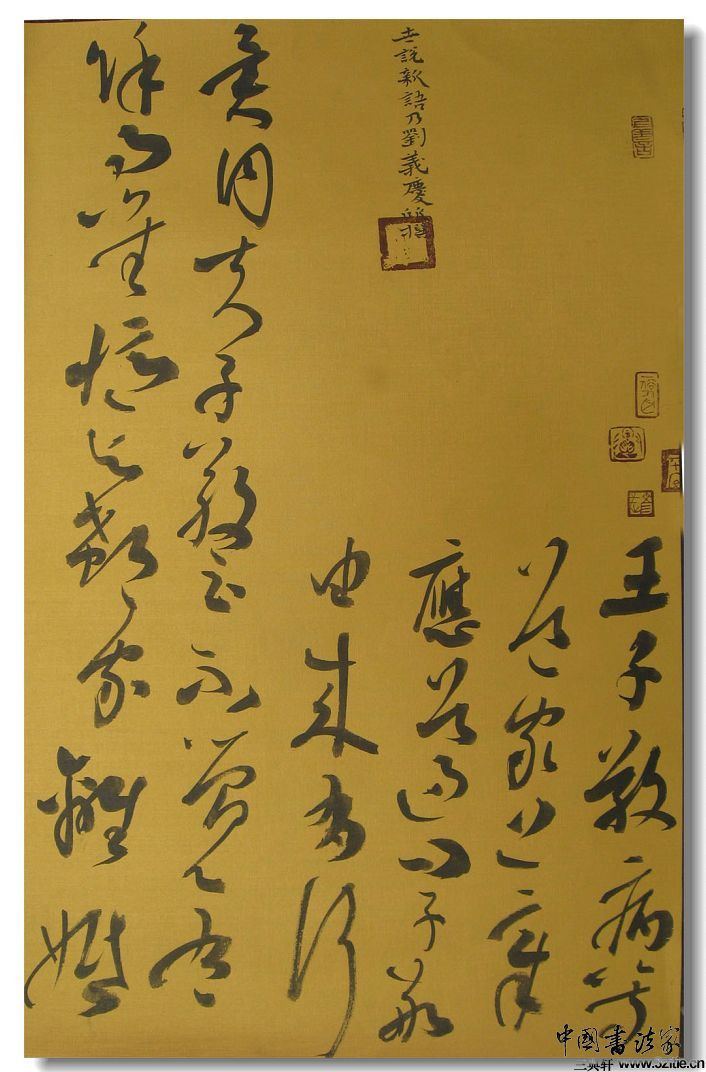 王子敬病篤
道家上章
應首過問子敬
由來有何
異同得失子敬云不覺有
餘事唯憶與郗家離婚
世說新語乃劉義慶
中國書法家